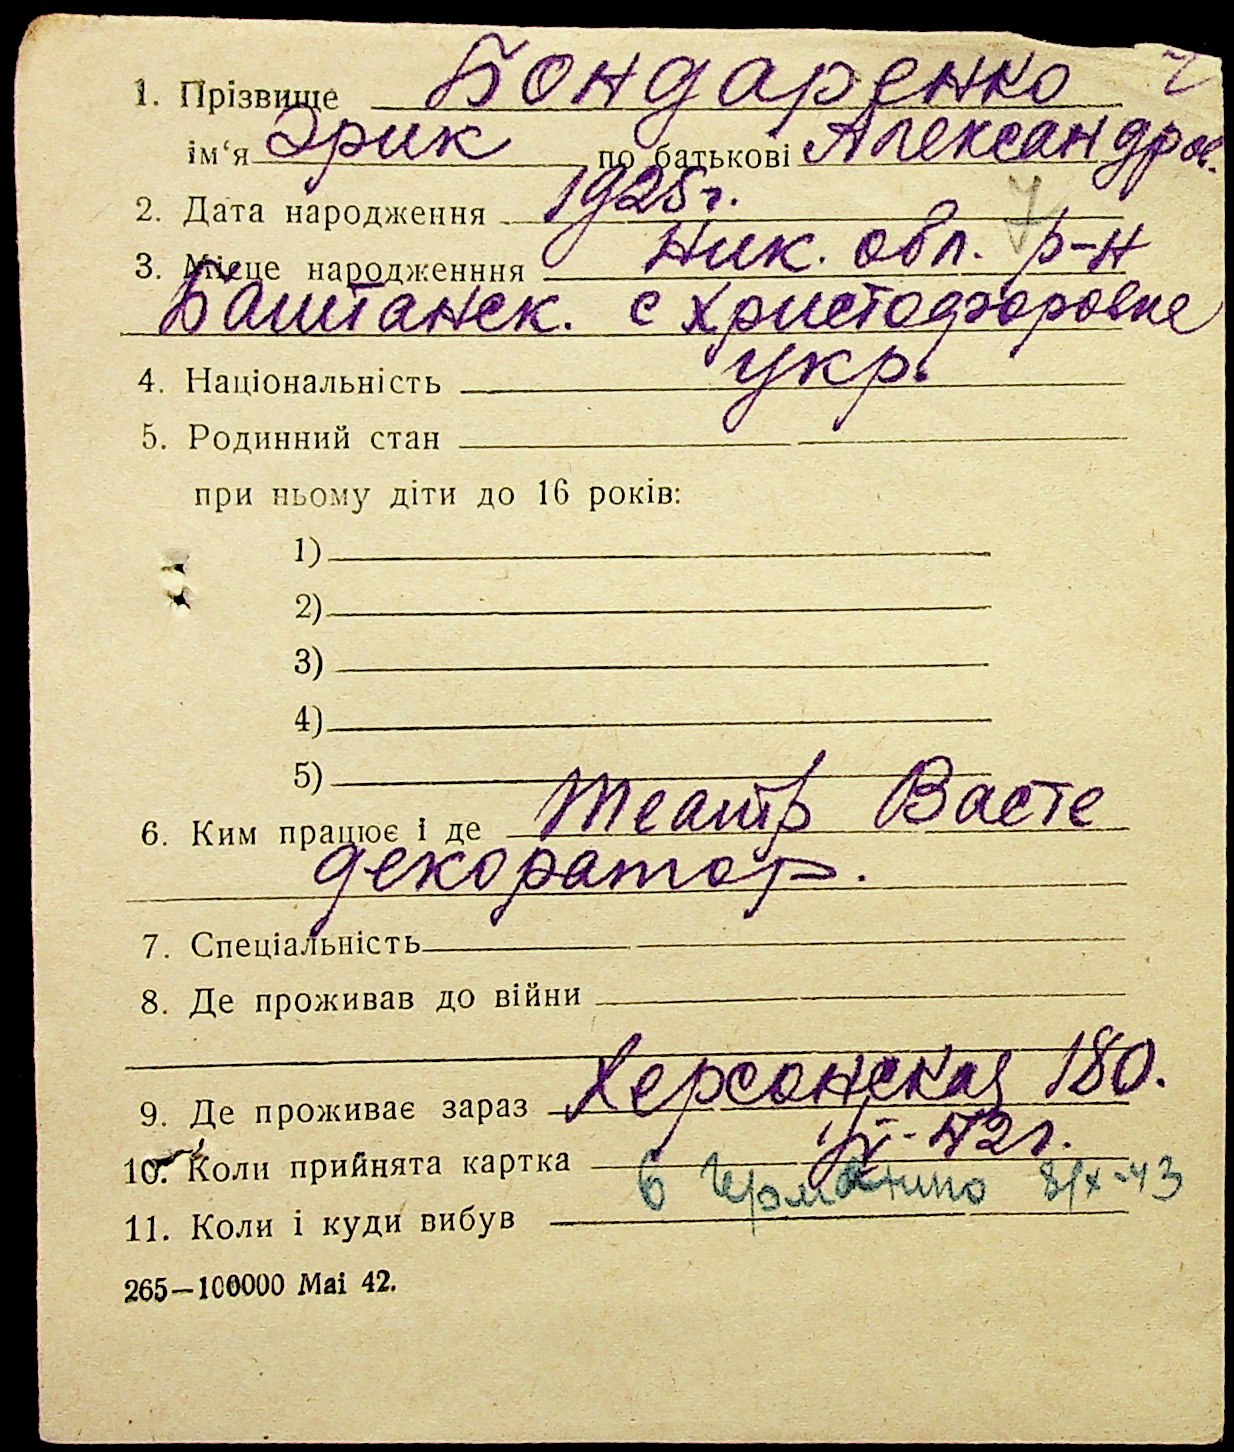 1. Прізвище Бондаренко
ім‘я Эрик по батькові Александров.
2. Дата народження 1925г.
3. Місце народженння Ник. обл. р-н
Баштанск. с Христофоровке
4. Національність укр.
5. Родинний стан
при ньому діти до 16 років:
1)
2)
3)
4)
5)
6. Ким працює і де театр Васте
декоратор.
7. Спеціальність
8. Де проживав до війни
9. Де проживає зараз Херсонская 180.
10. Коли прийнята картка 42г.
11. Коли і куди вибув в Германию 8/X-43
265—100000 Mai 42.